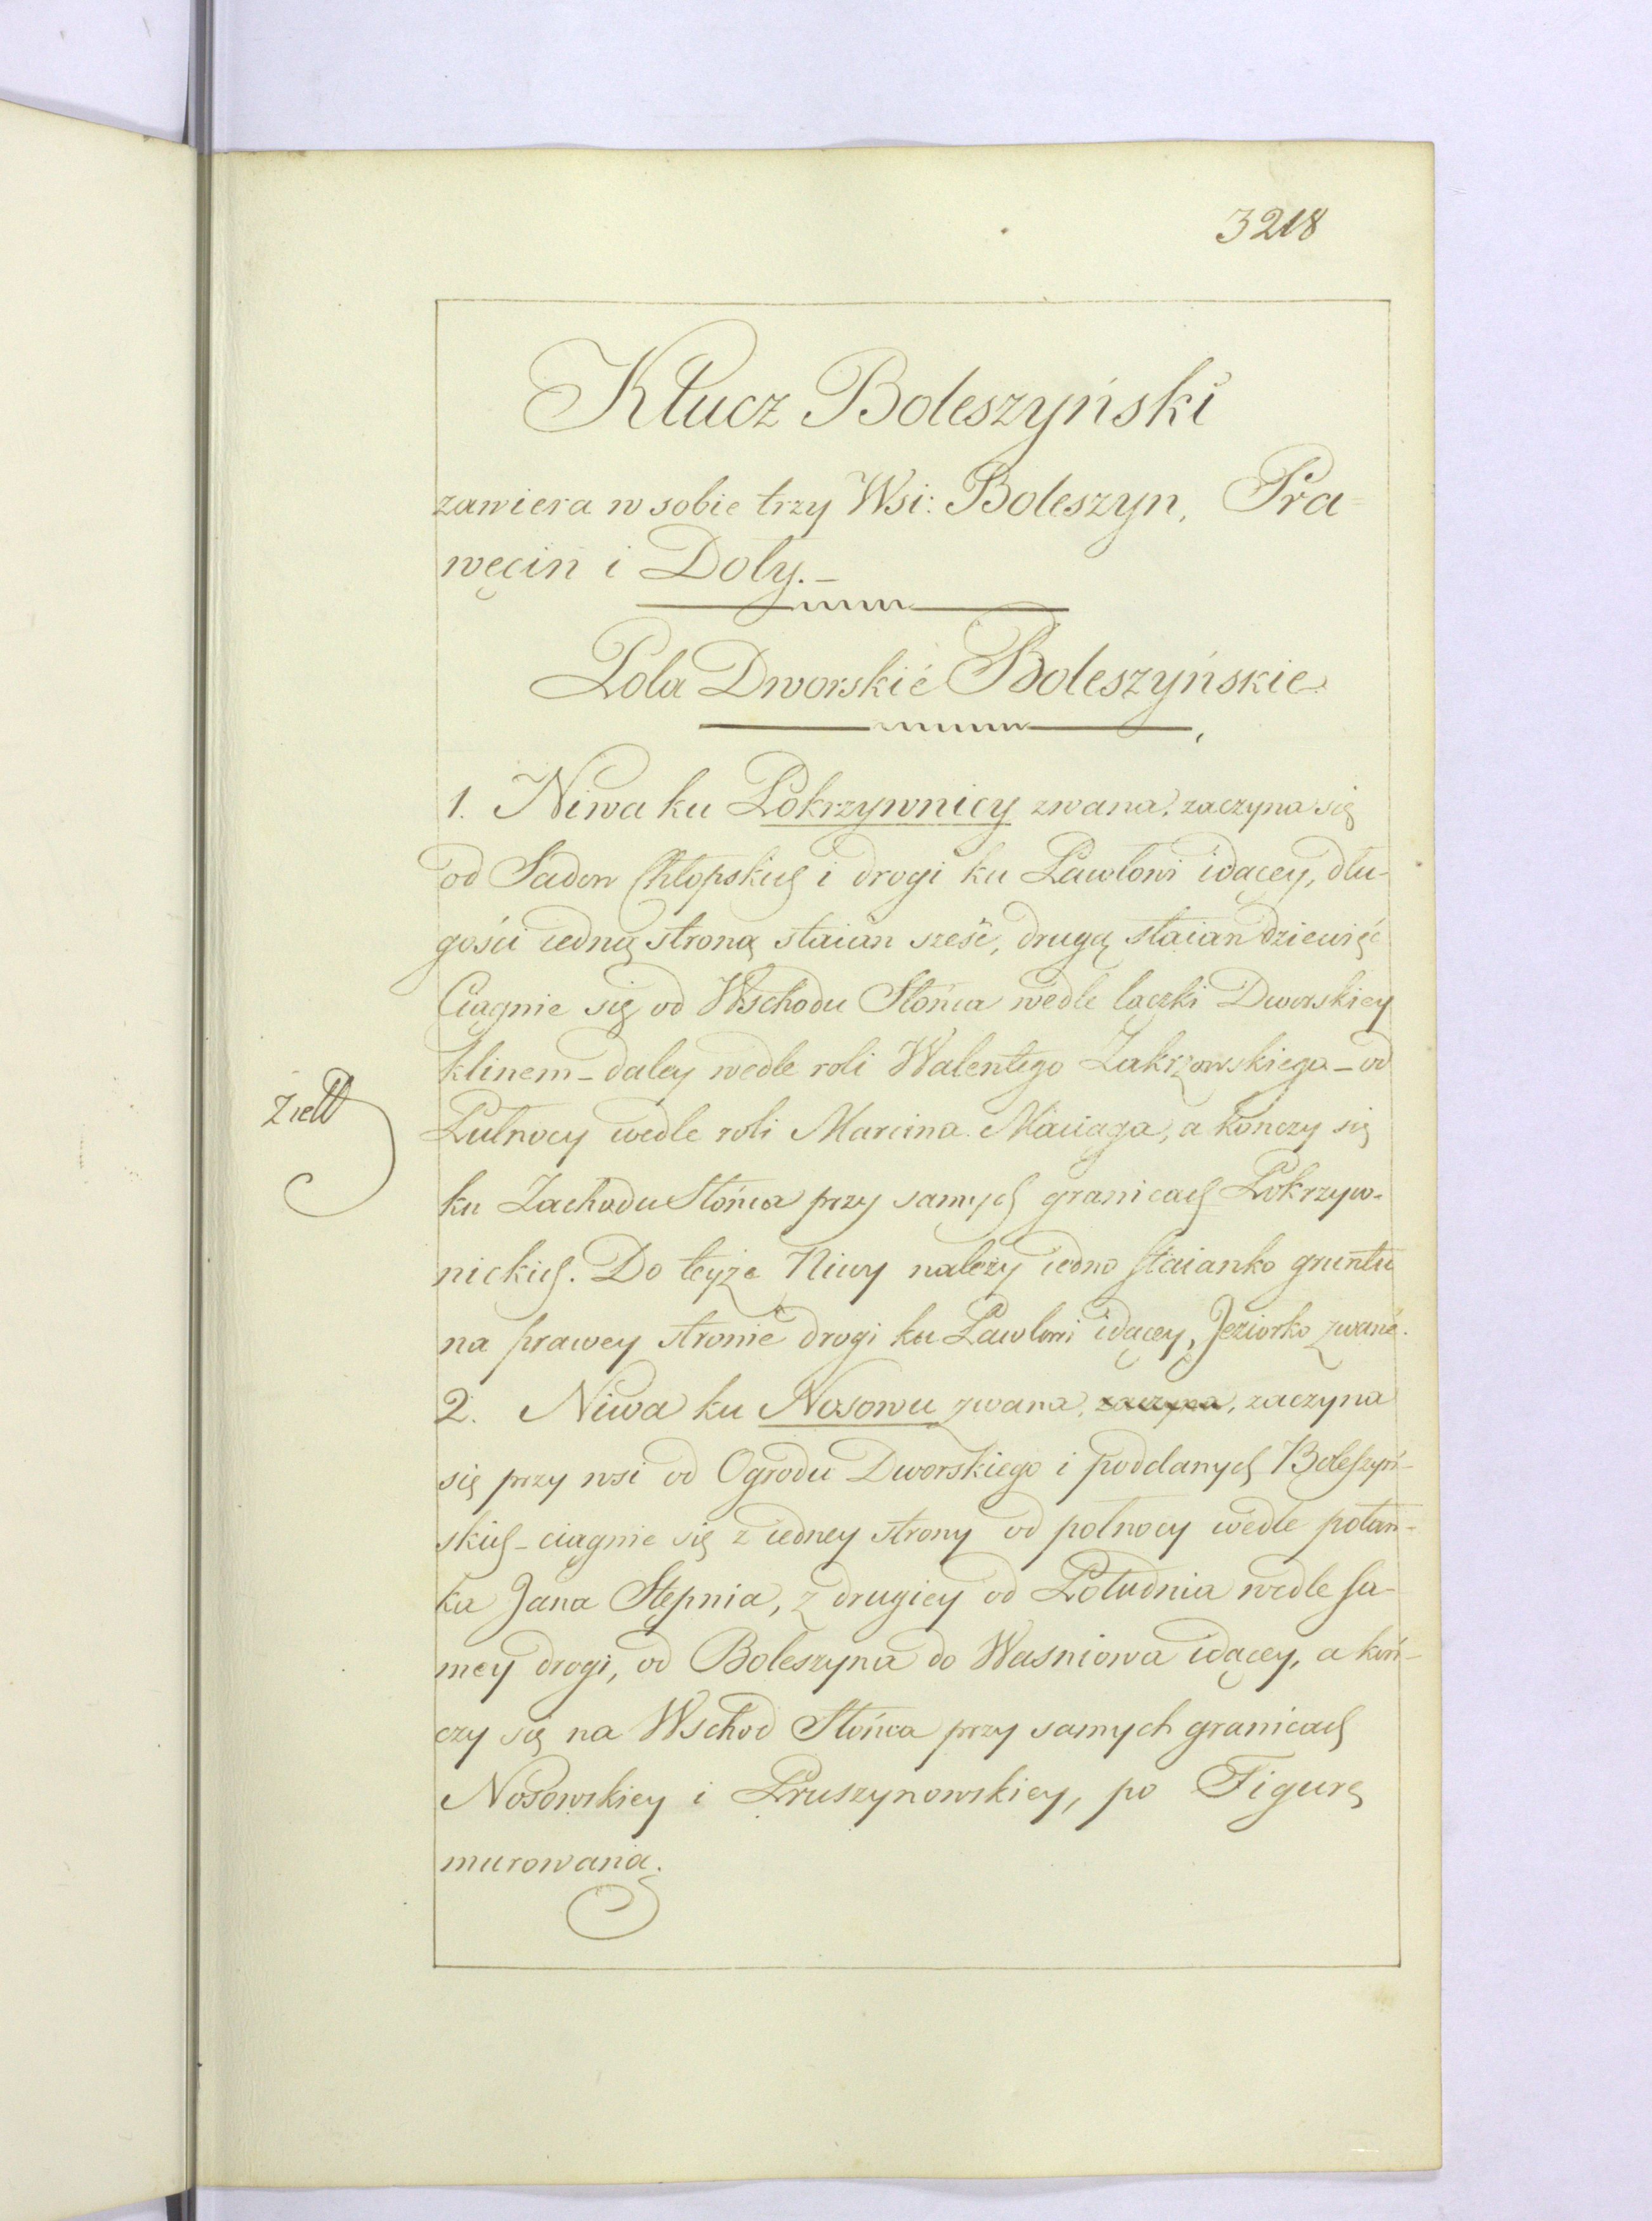 3218
Klucz Boleszyński
zawiera w sobie trzy Wsi: Boleszyn, Pra-
węcin i Doły.–
Pola Dworskié Boleszyńskie
1. Niwa ku Pokrzywnicy zwana, zaczyna się
od Sadow Chłopskich i drogi ku Pawłowi idącey, dłu-
gości iedną stroną staian sześć, drugą staian dziewięć
Ciągnie się od Wschodu Słońca wedle łączki Dworskiey
klinem – daley wedle roli Walentego Zakrzowskiego – od
Pułnocy wedle roli Marcina Maciąga, a kończy się
ku Zachodu Słońca przy samych granicach Pokrzyw-
nickich. Do teyże Niwy należy iedno staianko gruntu
na prawey stronie drogi ku Pawłowi idącey, Jeziorko zwané.
2. Niwa ku Nosowu zwana, zaczyna, zaczyna
się przy wsi od Ogrodu Dworskiego i poddanych Boleszyń-
skich – ciągnie się z iedney strony od połnocy wedle połan-
ka Jana Stępnia, z drugiey od Południa wedle sa-
mey drogi, od Boleszyna do Wasniowa idącey, a koń-
czy się na Wschod Słońca przy samych granicach
Nosowskiey i Pruszynowskiey, po Figurę
murowaną.